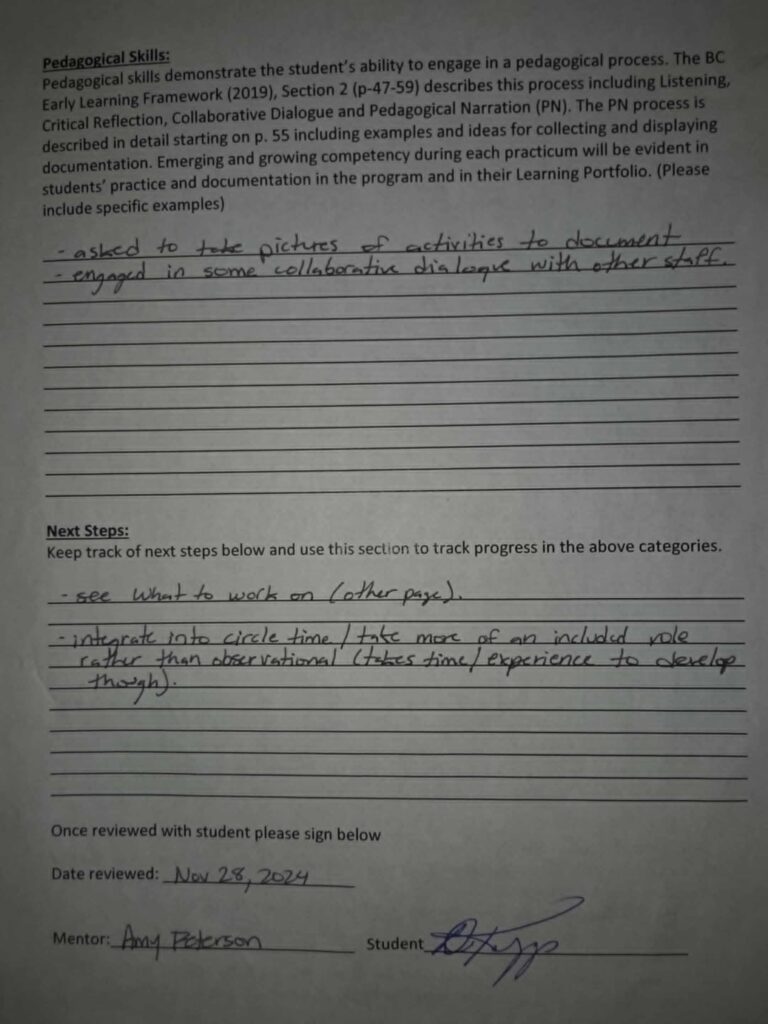 Pedagogical Skills:
Pedagogical skills demonstrate the student's ability to engage in a pedagogical process. The BC
Early Learning Framework (2019), Section 2 (p-47-59) describes this process including Listening,
Critical Reflection, Collaborative Dialogue and Pedagogical Narration (PN). The PN process is
described in detail starting on p. 55 including examples and ideas for collecting and displaying
documentation. Emerging and growing competency during each practicum will be evident in
students' practice and documentation in the program and in their Learning Portfolio. (Please
include specific examples)
- asked to take pictures of activities to document
- engaged in some collaborative dialogue with other staff.
Next Steps:
Keep track of next steps below and use this section to track progress in the above categories.
- see what to work on (other page).
- integrate into circle time / take more of an included role
rather than observational (takes time / experience to develop
though).
Once reviewed with student please sign below
Date reviewed: Nov 28, 2024
Mentor: Amy Peterson Student